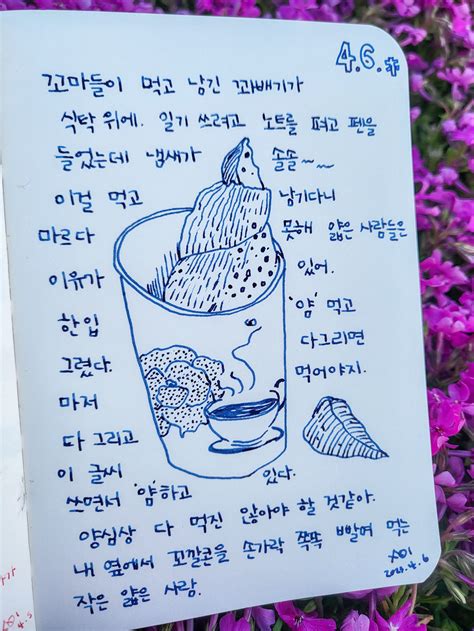 4.6.
꼬마들이 먹고 남긴 꽈배기가
식탁 위에. 일기 쓰려고 노트를 펴고 펜을
들었는데 냄새가 솔솔~~
이걸 먹고 남기다니
마르다 못해 얇은 사람들은
이유가 있어.
한입 '얌' 먹고
그렸다. 다그리면
마저 먹어야지.
다 그리고
이 글씨
쓰면서 '얌'하고 있다.
양심상 다 먹진 않아야 할 것같아.
내 옆에서 꼬깔콘을 손가락 쪽쪽 빨며 먹는
작은 얇은 사람.
4.6
4.5